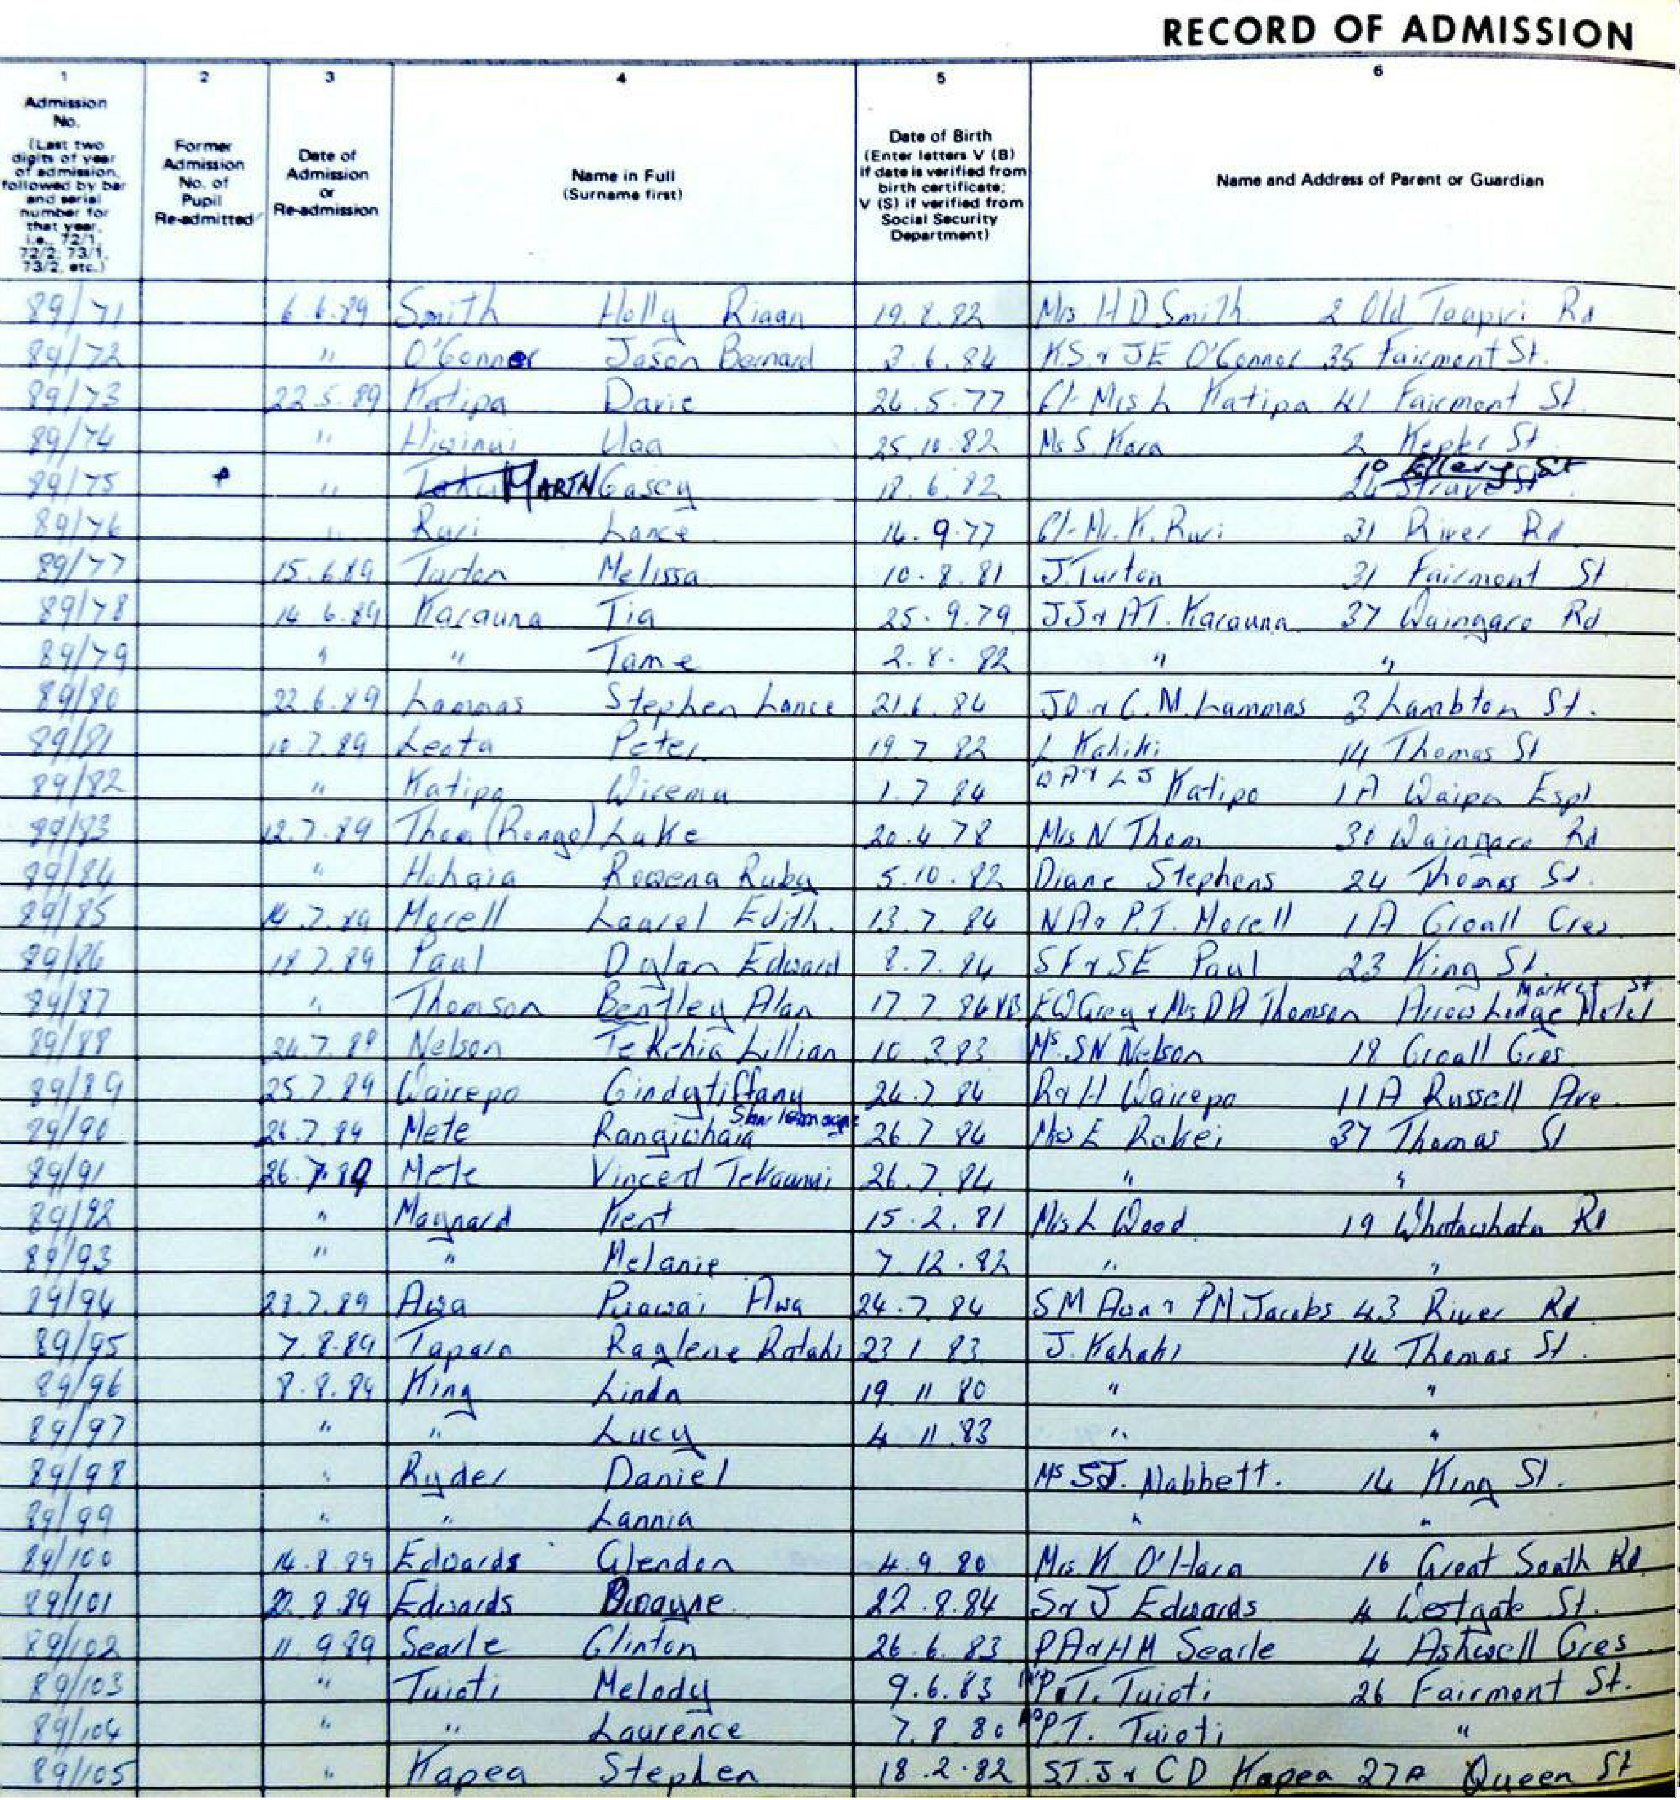 RECORD OF ADMISSION
1 2 3 4 5 6
Admission No. (Last two digits of year of admission, followed by bar and serial number for that year, i.e., 72/1, 72/2; 73/1, 73/2, etc.)
Former Admission No. of Pupil Re-admitted
Date of Admission or Re-admission
Name in Full (Surname first)
Date of Birth (Enter letters V (B) if date is verified from birth certificate; V (S) if verified from Social Security Department)
Name and Address of Parent or Guardian
89/71 6.6.89 Smith Holly Riaan 19.8.82 Mrs H D Smith 2 Old Taupiri Rd
89/72 " O'Connor Jason Bernard 3.6.84 K.S & J E O'Connor 35 Fairmont St.
89/73 22.5.89 Katipa Darie 24.5.77 C/- Mrs L Katipa 41 Fairmont St
89/74 " Hiwinui 25.10.82 Ms S. Kara 2 Kepler St
89/75 " MARTN Casey 18.6.82 10 Ellery St
24 Struve St
89/76 " Ruri Lance 14.9.77 C/- Mr. K. Ruri 31 River Rd
89/77 15.6.89 Turton Melissa 10.8.81 J. Turton 31 Fairmont St
89/78 14.6.89 Karauna Tia 25.9.79 J J & A T. Karauna 37 Waingaro Rd
89/79 " " Tame 2.8.82 " "
89/80 22.6.89 Lammas Stephen Lance 21.6.84 J D & C. M. Lammas 3 Lambton St.
89/81 10.7.89 Leota Peter 19.7.82 L Kahiki 14 Thomas St
89/82 " Katipa Wirema 1.7.84 L J Katipa 1A Waipa Espl
89/83 12.7.89 Thom (Rongo) Luke 20.4.78 Mrs N Thom 30 Waingaro Rd
89/84 " Hohaia Rowena Ruby 5.10.82 Diane Stephens 24 Thomas St.
89/85 14.7.89 Morell Laurel Edith. 13.7.84 N A & P. T. Morell 1A Croall Cres
89/86 18.7.89 Paul Dylan Edward 8.7.84 S F & S E Paul 23 King St.
89/87 " Thomson Bentley Alan 17.7.84 VB E W Grey & Mrs D A Thomson Arrow Lodge Motel Market St
89/88 24.7.89 Nelson Te Rehia Lillian 10.3.83 Ms. S N Nelson 18 Croall Cres
89/89 25.7.89 Wairepo Cindytiffany 24.7.84 R & H Wairepo 11A Russell Ave.
89/90 26.7.89 Mete Rangiwhaia 26.7.84 Mrs E Rakei 37 Thomas St
89/91 26.7.89 Mete Vincent 26.7.84 " "
89/92 " Maynard Kent 15.2.81 Mrs L Wood 19 Whatawhata Rd
89/93 " " Melanie 7.12.82 " "
89/94 28.7.89 Awa Puawai Awa 24.7.84 S M Awa & P M Jacobs 43 River Rd
89/95 7.8.89 Tapara Raglene Rotahi 23 1 83 J. Kahaki 14 Thomas St.
89/96 8.8.89 King Linda 19 11 80 " "
89/97 " " Lucy 4 11 83 " "
89/98 " Ryder Daniel Ms S J. Mabbett. 14 King St.
89/99 " " Lannia " "
89/100 14.8.89 Edwards Glendon 4.9 80 Mrs K O'Hara 16 Great South Rd
89/101 22.8.89 Edwards Dwayne 22.8.84 S & J Edwards 4 Westgate St.
89/102 11.9.89 Searle Clinton 26.6.83 P A & H M Searle 4 Ashwell Cres
89/103 " Tuioti Melody 9.6.83 P. T. Tuioti 26 Fairmont St.
89/104 " " Laurence 7.8.80 P T. Tuioti "
89/105 " Kapea Stephen 18.2.82 S T. J & C D Kapea 27A Queen St